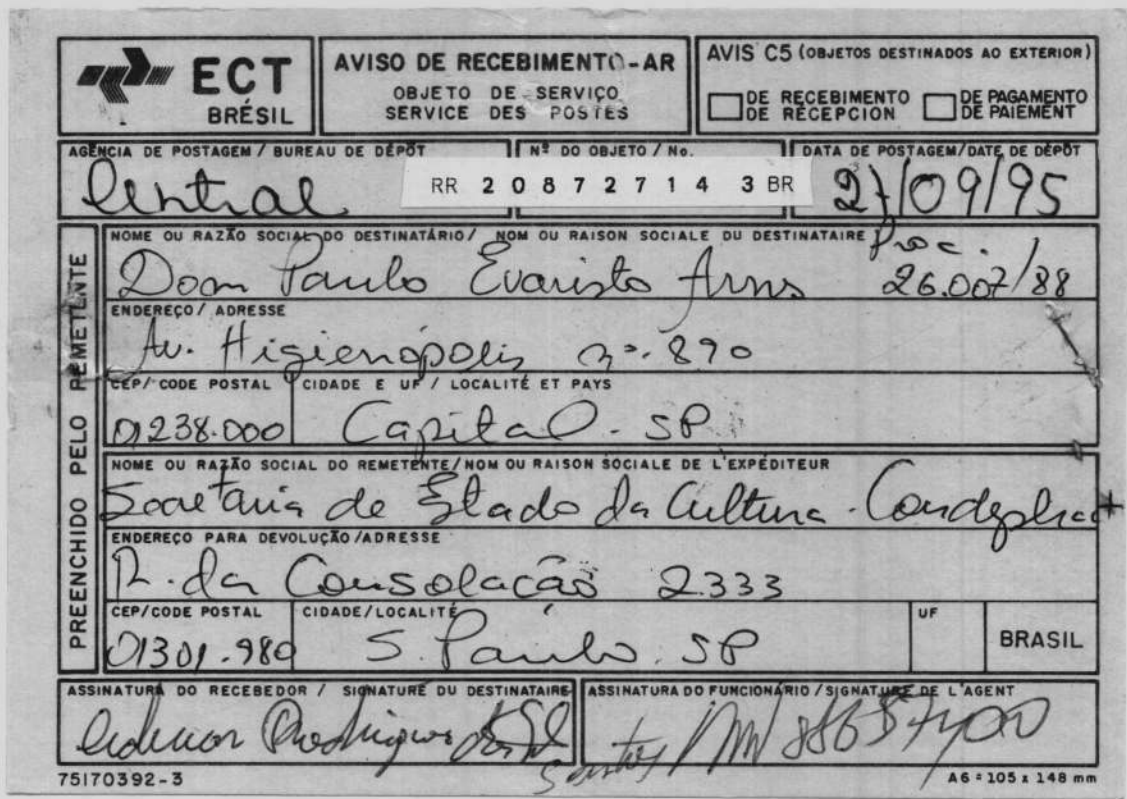 ECT
BRÉSIL
AVISO DE RECEBIMENTO-AR
OBJETO DE SERVIÇO
SERVICE DES POSTES
AVIS C5 (OBJETOS DESTINADOS AO EXTERIOR)
DE RECEBIMENTO
DE RÉCEPCION
DE PAGAMENTO
DE PAIEMENT
AGÊNCIA DE POSTAGEM / BUREAU DE DÉPÔT
Central
Nº DO OBJETO / No.
RR 2 0 8 7 2 7 1 4 3 BR
DATA DE POSTAGEM/DATE DE DÉPÔT
27/09/95
PREENCHIDO PELO REMETENTE
NOME OU RAZÃO SOCIAL DO DESTINATÁRIO / NOM OU RAISON SOCIALE DU DESTINATAIRE
Proc.
Dom Paulo Evaristo Arns 26.007/88
ENDEREÇO / ADRESSE
Av. Higienópolis nº. 890
CEP/ CODE POSTAL
01238.000
CIDADE E UF / LOCALITÉ ET PAYS
Capital - SP
NOME OU RAZÃO SOCIAL DO REMETENTE/NOM OU RAISON SOCIALE DE L'EXPÉDITEUR
Secretaria de Estado da Cultura - Condephaat
ENDEREÇO PARA DEVOLUÇÃO /ADRESSE
R. da Consolação 2333
CEP/CODE POSTAL
01301.980
CIDADE/LOCALITÉ
S. Paulo. SP
UF
BRASIL
ASSINATURA DO RECEBEDOR / SIGNATURE DU DESTINATAIRE
Rodrigues
ASSINATURA DO FUNCIONÁRIO / SIGNATURE DE L'AGENT
Santos
75170392-3
A6 = 105 x 148 mm